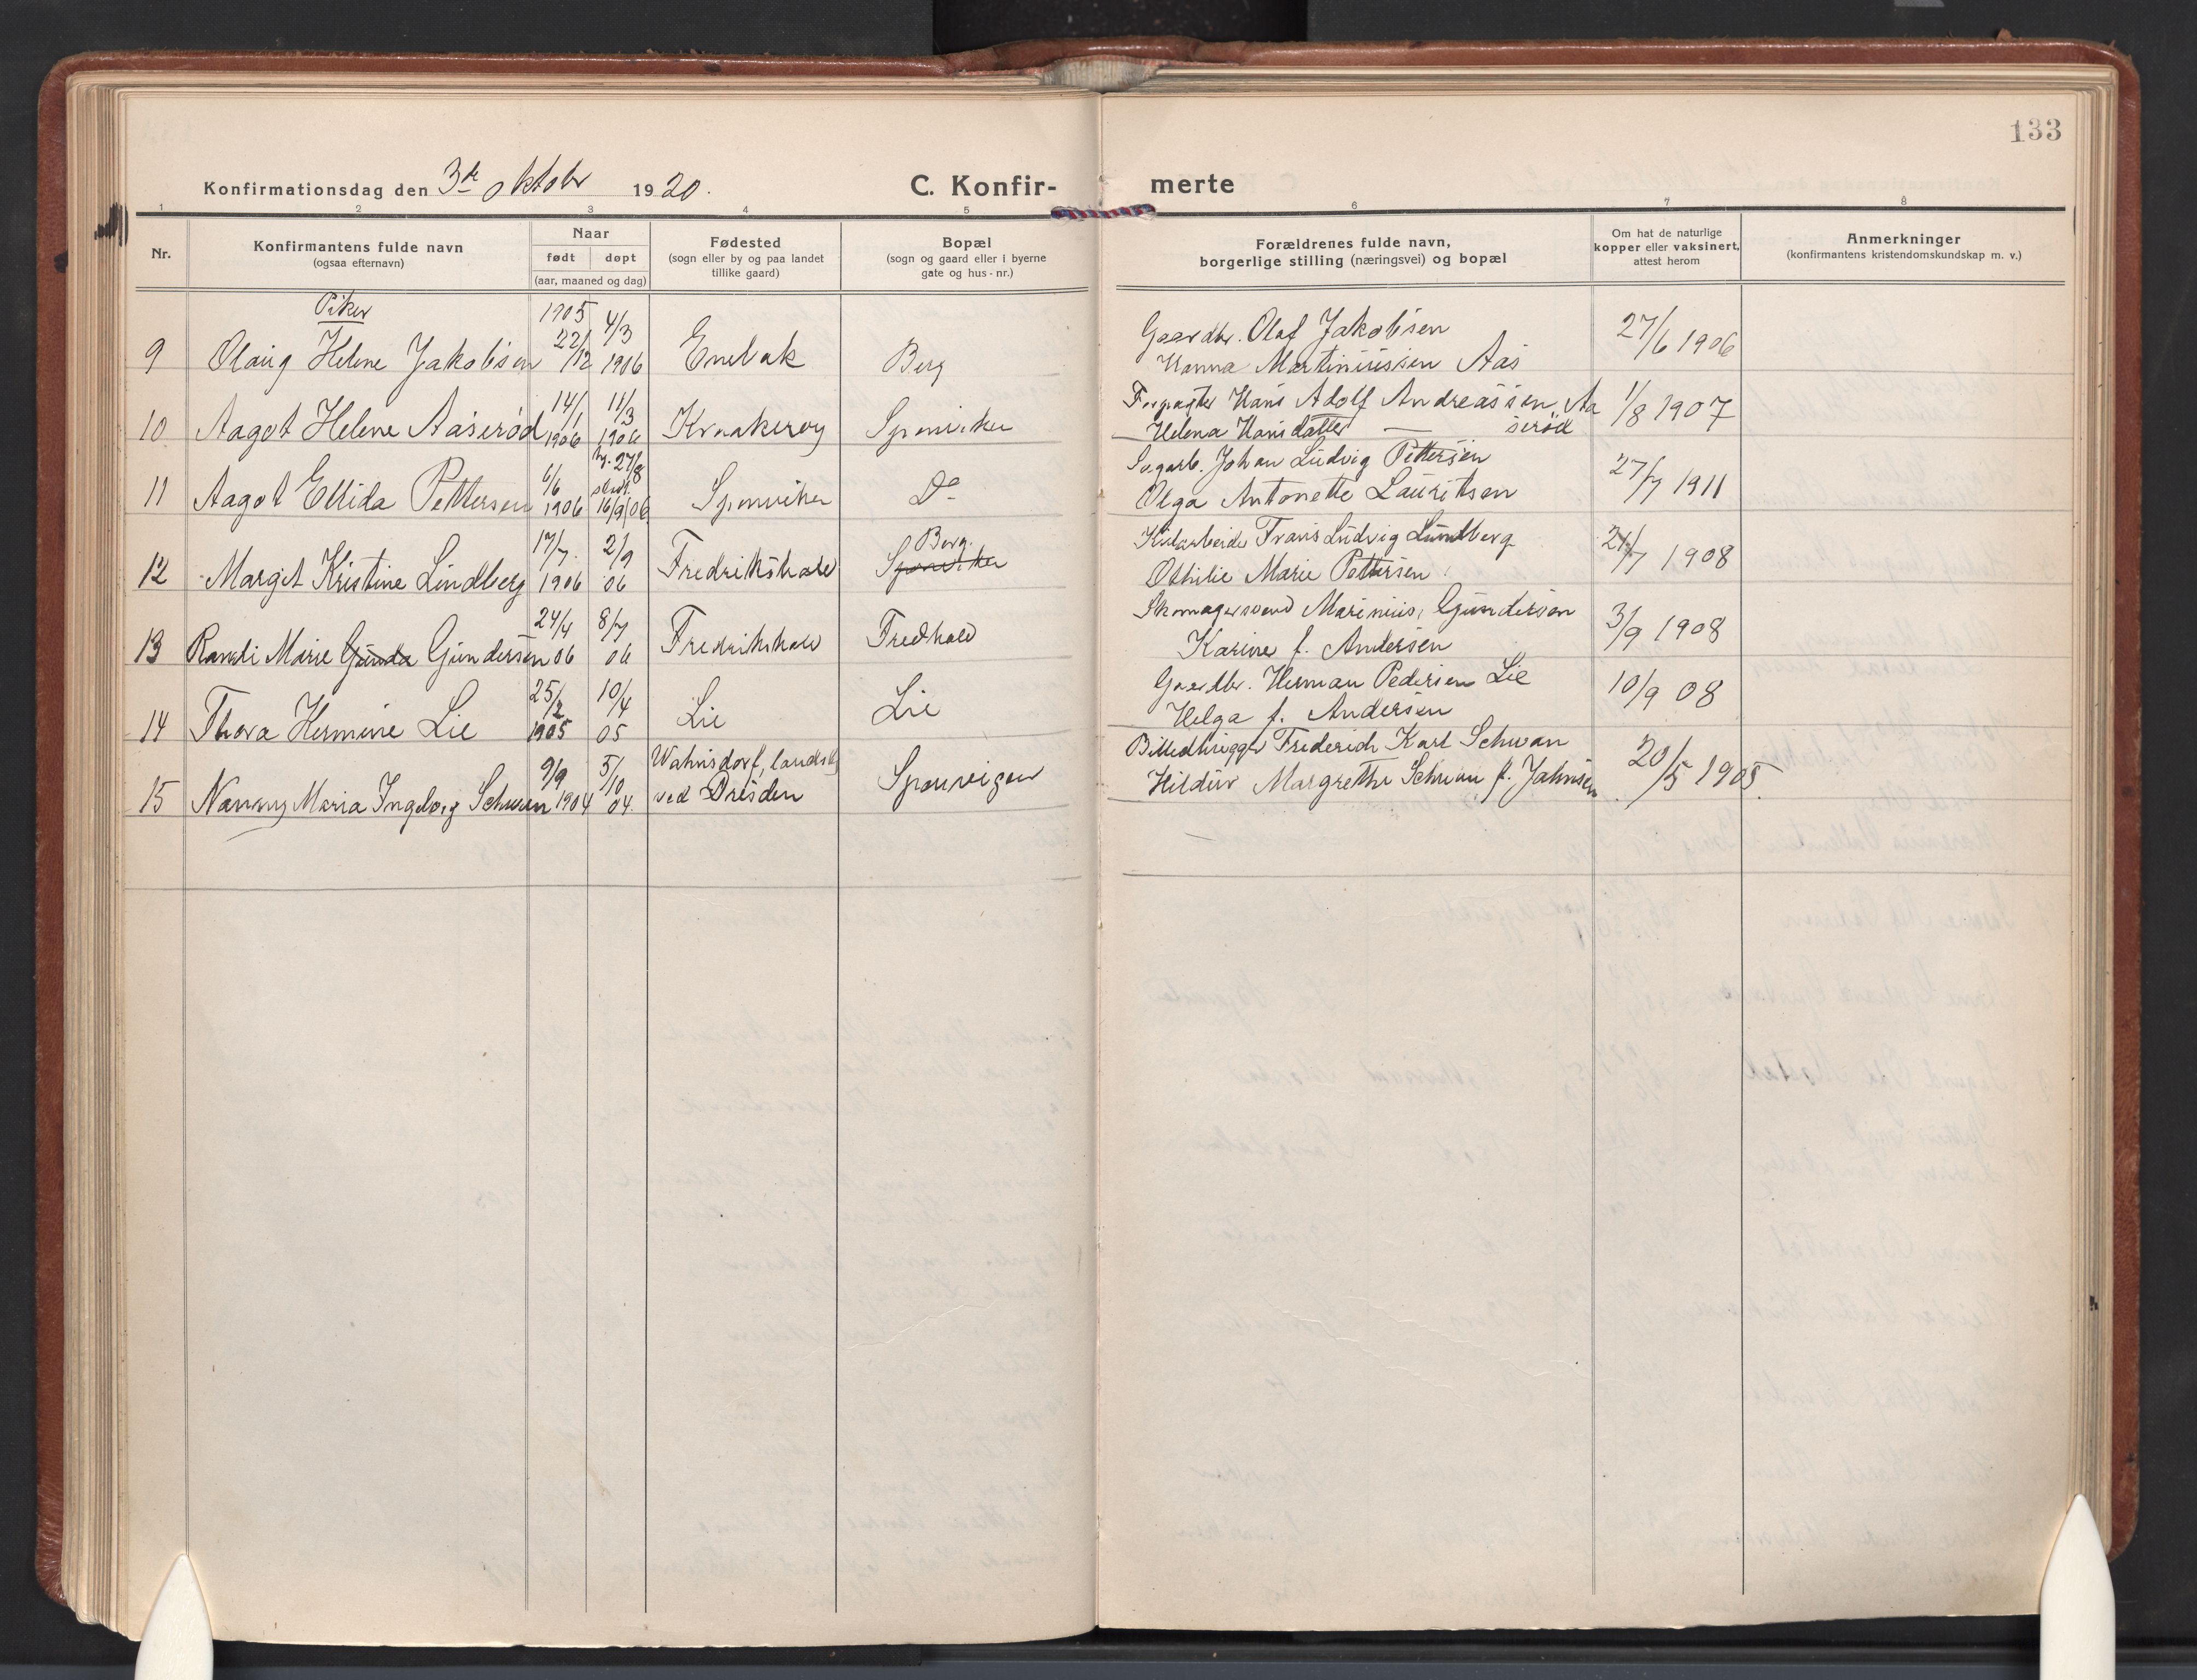 133
Konfirmationsdag den 3de Oktober 1920.
C. Konfir-
merte
1 2 3 4 5 6 7 8
Nr.
Konfirmantens fulde navn
(ogsaa efternavn)
Naar
født døpt
(aar, maaned og dag)
Fødested
(sogn eller by og paa landet
tillike gaard)
Bopæl
(sogn og gaard eller i byerne
gate og hus-nr.)
Forældrenes fulde navn,
borgerlige stilling (næringsvei) og bopæl
Om hat de naturlige
kopper eller vaksinert,
attest herom
Anmerkninger
(konfirmantens kristendomskundskap m. v.)
Piker
1905 4/3 Gaardbr. Olaf Jakobsen 27/6 1906
9 Olaug Helene Jakobsen 22/12 1906 Enebak Berg Hanna Martiniussen Aas
14/1 11/3 Forpagter Hans Adolf Andreassen Aa 1/8 1907
10 Aagot Helene Aaserød 1906 1906 Kraakerøy Sponviken Helena Hansdatter — serød
6/6 hj. 27/8 Sagarb. Johan Ludvig Pettersen 27/7 1911
11 Aagot Elida Pettersen 1906 stadf. 16/9 06 Sponviken Do Olga Antonette Lauritsen
17/7. 2/9 Berg. Frans Ludvig Lundberg 21/7 1908
12 Margit Kristine Lindberg 1906 06 Fredrikshald Sponviken Othilie Marie Pettersen
24/4 8/7 Skomagersvend Marinius Gundersen 3/9 1908
13 Randi Marie Gunda Gundersen 06 06 Fredrikshald Fredhald Karine f. Andersen
25/2 10/4 Gaardbr. Herman Pedersen Lie 10/9 08
14 Thora Hermine Lie 1905 05 Lie Lie Helga f. Andersen
9/9 5/10 Wahnsdorf, landsb. Billedhugger Frederich Karl Schwan 20/5 1905.
15 Nanny Maria Ingeborg Schwan 1904 04. ved Dresden Sponvigen Hildur Margrethe Schwan f. Jahnsen